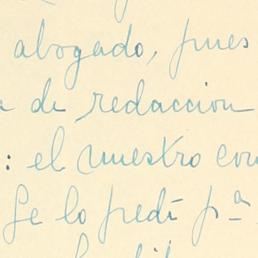 abogado, pues
de redaccion
: el nuestro con
Se lo pedí pª